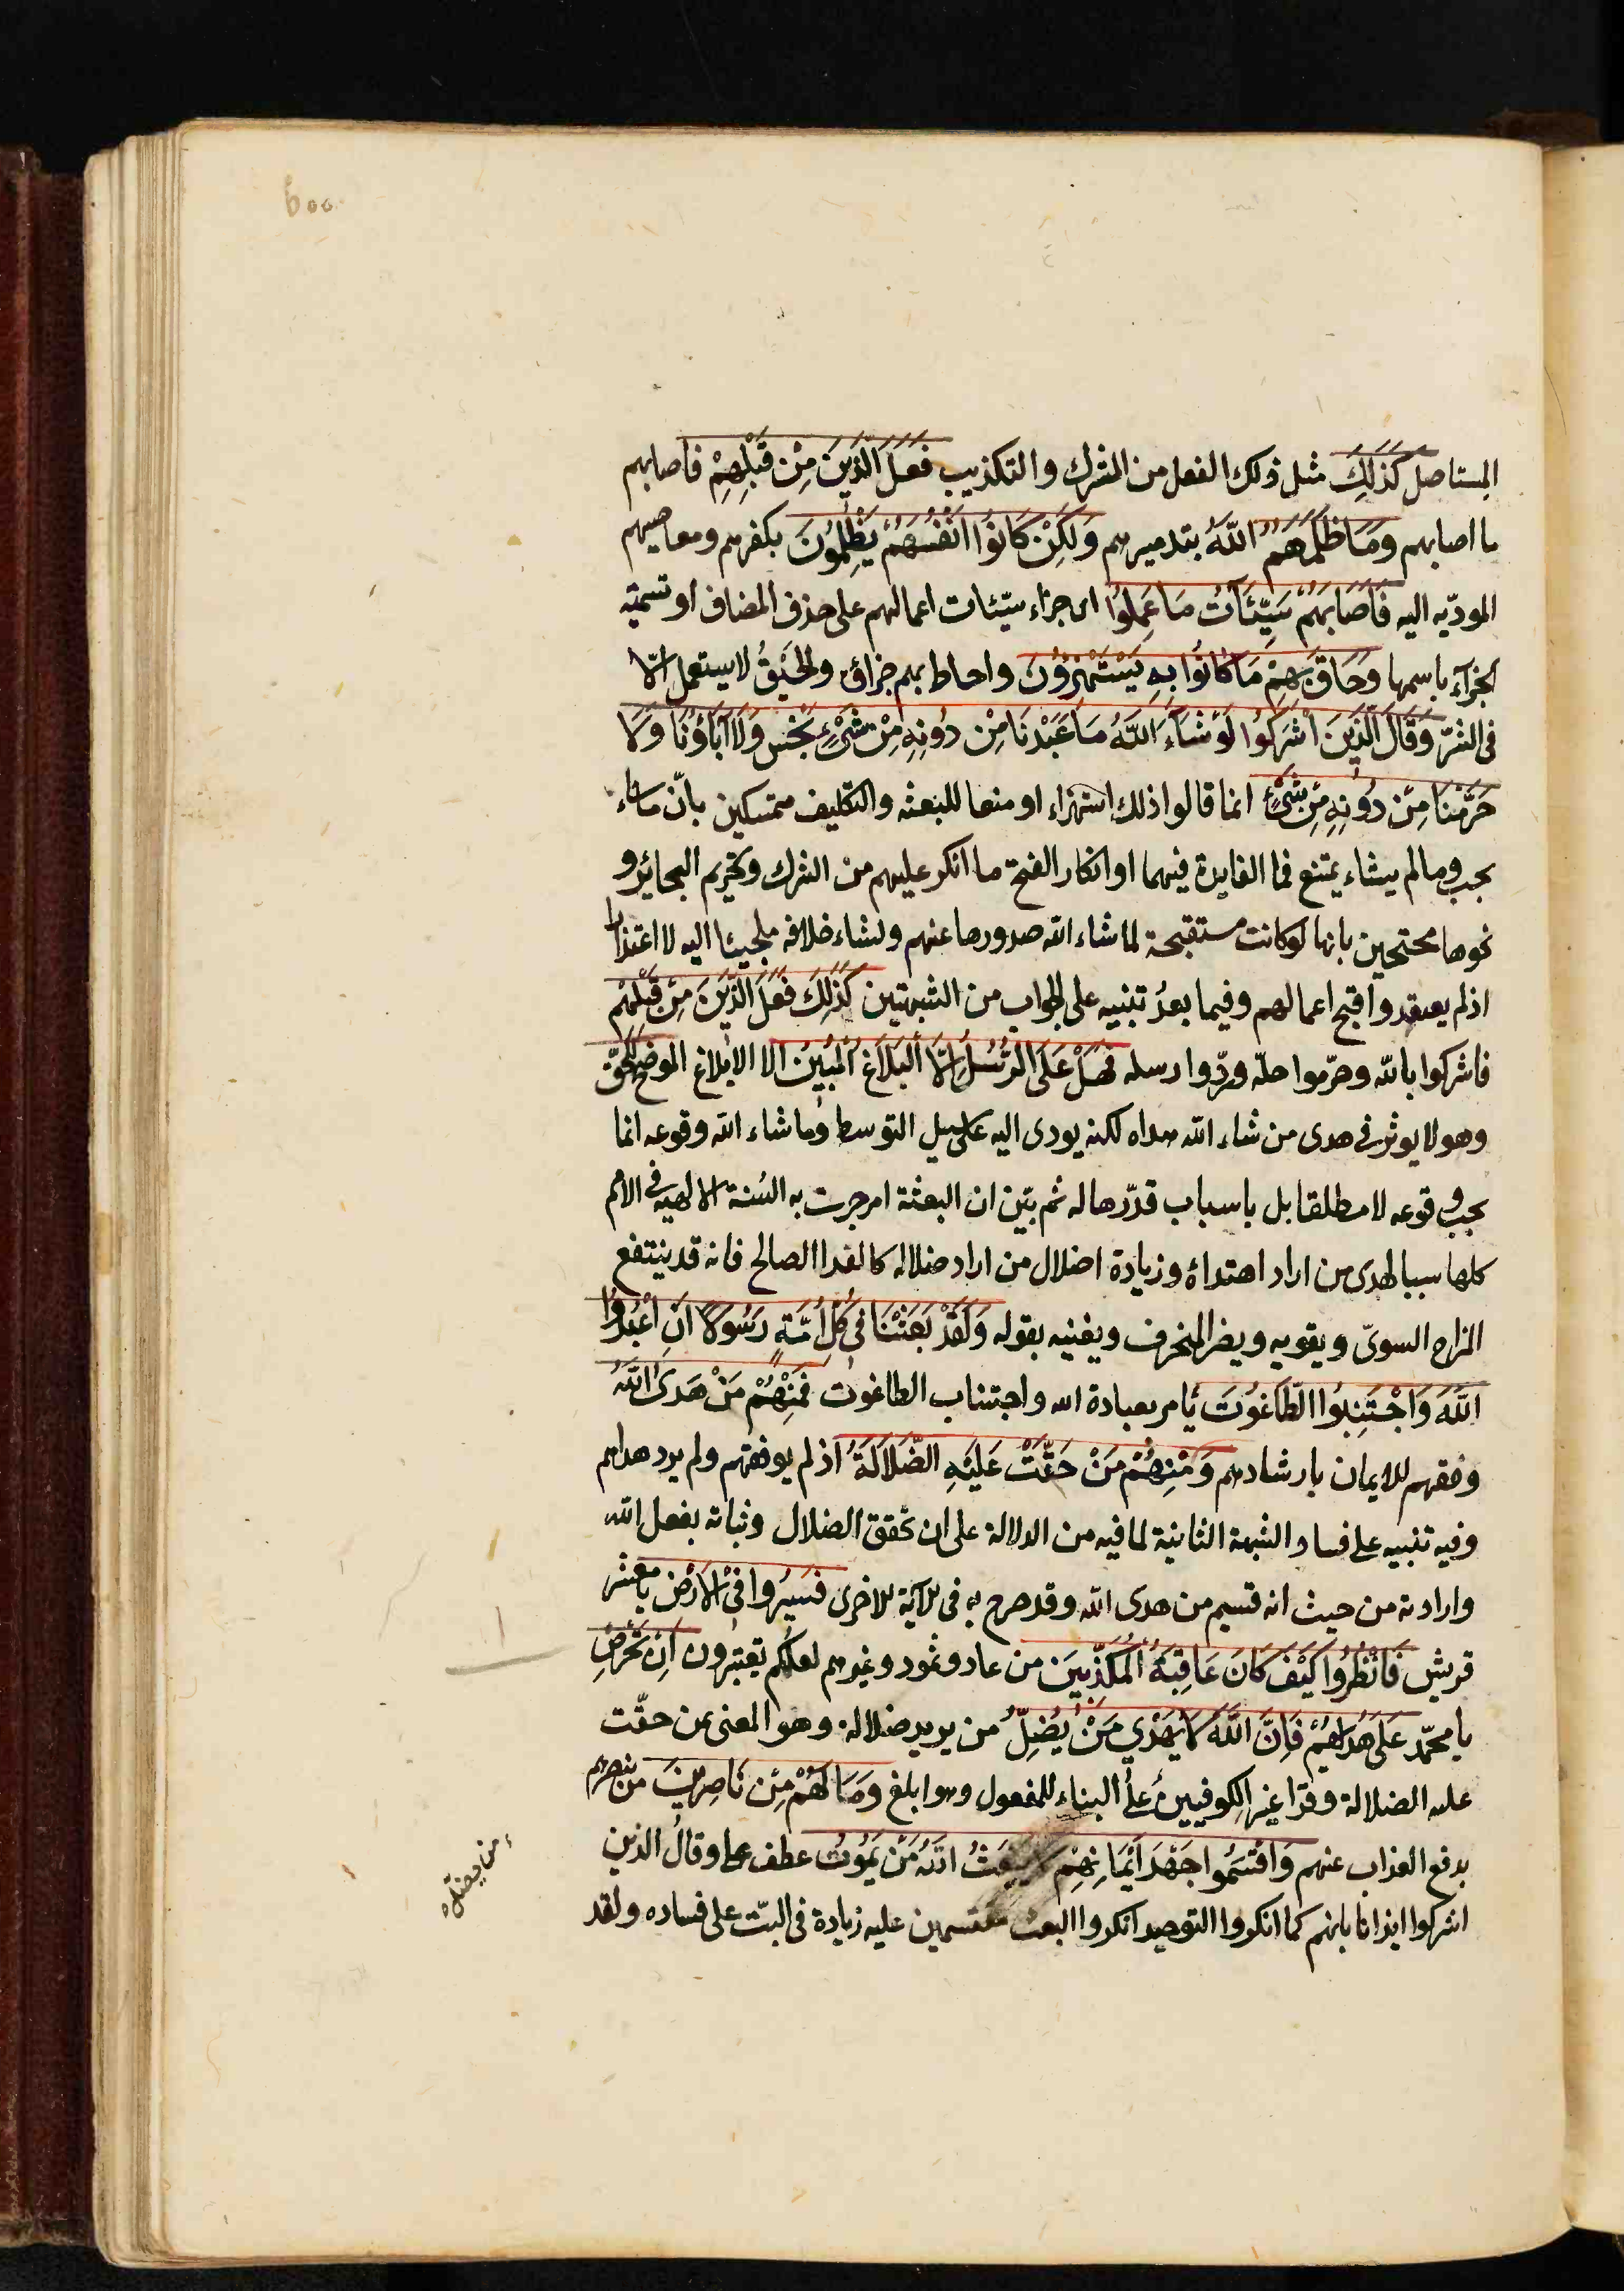 المستاصل كَذَلِكَ مثل ذلك الفعل من الشرك والتكذيب فَعَلَ الَّذِينَ مِنْ قَبْلِهِمْ فاصابهم
ما اصابهم وَمَا ظَلَمَهُمُ اللّهُ بتدميرهم وَلَكِنْ كَانُوا اَنْفُسَهُمْ يَظْلِمُونَ بكفرهم ومعاصيهم
المودّيه اليه فَاَصَابَهُمْ سَيِّئَاتُ مَا عَمِلُوا اى جزاء سيّئات اعمالهم على حذف المضاف او تسمية
الجزآء باسمها وَحَاقَ بِهِمْ مَا كَانُوا بِهِ يَسْتَهْزِؤُنَ واحاط بهم جزاؤه والحَيْقُ لا يستعمل الّا
فى الشرّ وَقَالَ الَّذِينَ اَشْرَكُوا لَوْ شَاءَ اللَّهُ مَا عَبَدْنَا مِنْ دُونِهِ مِنْ شَىْءٍ نَحْنُ وَلَا آبَاؤُنَا وَلَا
حَرَّمْنَا مِنْ دُونِهِ مِنْ شَىْءٍ انما قالوا ذلك استهزاء او منعا للبعثه والتكليف متمسكين بانّ ما شاء
يجب وما لم يشاء يمتنع فما الفايدة فيهما او انكار القبح ما انكر عليهم من الشرك وتحريم البحائر و
نحوها محتجين بانها لو كانت مستقبحة لما شاء الله صدورها عنهم ولشاء خلافه ملجيئا اليه لا اعتذارا
اذ لم يعتقدوا قبح اعمالهم وفيما بعدُ تنبيه على الجواب من الشبهتين كَذَلِكَ فَعَلَ الَّذِينَ مِنْ قَبْلِهِمْ
فاشركوا بالله وحرّموا حلّه وردّوا رسله فَهَلْ عَلَى الرُّسُلِ اِلَّا الْبَلَاغُ الْمُبِينُ الا الابلاغ الموضح للحقّ
وهو لا يوثر فى هدى من شاء الله هداه لكنه يودى اليه على سبيل التوسط وما شاء الله وقوعه انما
يجب وقوعه لا مطلقا بل باسباب قدّرها له ثم بيّن ان البعثة امر جرت به السُنة الالهيه فى الامم
كلها سببا لهدى من اراد اهتداه وزيادة اضلال من اراد ضلاله كالغدا الصالح فانه قد ينتفع
المزاج السوىّ ويقويه ويضر المنحرف ويفنيه بقوله وَلَقَدْ بَعَثْنَا فِى كُلِّ اُمَّةٍ رَسُولًا اَنِ اعْبُدُوا
اللَّهَ وَاجْتَنِبُوا الطَّاغُوتَ يامر بعبادة الله واجتناب الطاغوت فَمِنْهُمْ مَنْ هَدَى اللَّهُ
وفقهم للايمان بارشادهم وَمِنْهُمْ مَنْ حَقَّتْ عَلَيْهِ الضَّلَالَةُ اذ لم يوفقهم ولم يرد هداهم
وفيه تنبيه على فساد الشبهة الثانية لما فيه من الدلالة على ان تحقق الضلال وثباته بفعل الله
وارادته من حيث انه قسيم من هدى الله وقد صرح به فى الآية الاخرى فَسِيرُوا فِى الْاَرْضِ يا معشر
قريش فَانْظُرُوا كَيْفَ كَانَ عَاقِبَةُ الْمُكَذِّبِينَ من عاد وثمود وغيرهم لعلكم تعتبرون اِنْ تَحْرِصْ
يا محمّد عَلَى هُدَاهُمْ فَاِنَّ اللَّهَ لَا يَهْدِي مَنْ يُضِلُّ من يريد ضلاله وهو المعنى بمن حقّت
عليه الضلالة وقرا غير الكوفيين على البناء للمفعول وهو ابلغ وَمَا لَهُمْ مِنْ نَاصِرِينَ من ينصرهم
بدفع العذاب عنهم وَاَقْسَمُوا جَهْدَ اَيْمَانِهِمْ لَا يَبْعَثُ اللَّهُ مَنْ يَمُوتُ عطف على وقال الذين
اشركوا ايذانا بانهم كما انكروا التوحيد انكروا البعث مقسمين عليه زيادة فى البتّ على فساده ولقد